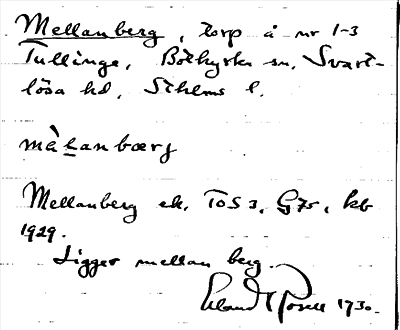 Mellanberg, torp å nr 1-3
Tullinge, Botkyrka sn, Svart-
lösa hd, Sthlms l.
mä̀lanbærj
Mellanberg ek. TOS 3, G75, kb
1929.
Ligger mellan berg.
Erland Rosell 1930.